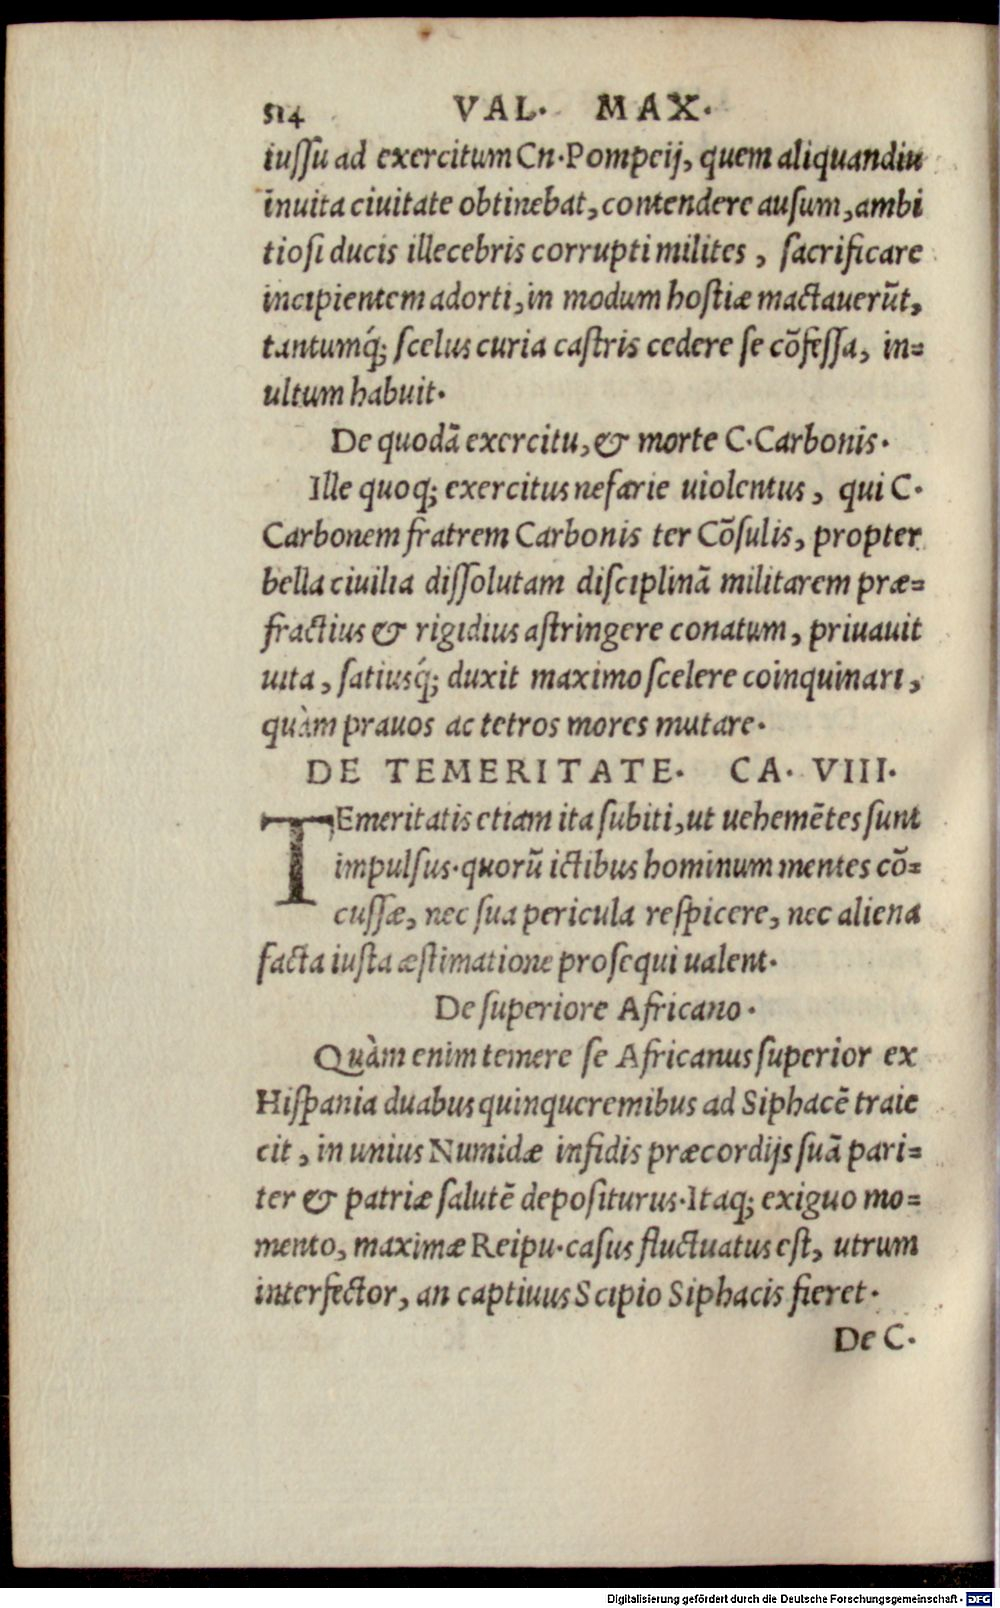 514 VAL. MAX.
iussu ad exercitum Cn. Pompeij, quem aliquandiu
inuita ciuitate obtinebat, contendere ausum, ambi
tiosi ducis illecebris corrupti milites, sacrificare
incipientem adorti, in modum hostiæ mactauerūt,
tantumq́; scelus curia castris cedere se cōfessa, in=
ultum habuit.
De quodā exercitu, & morte C. Carbonis.
Ille quoq; exercitus nefarie uiolentus, qui C.
Carbonem fratrem Carbonis ter Cōsulis, propter
bella ciuilia dissolutam disciplinā militarem præ=
fractius & rigidius astringere conatum, priuauit
uita, satiusq́; duxit maximo scelere coinquinari,
quàm prauos ac tetros mores mutare.
DE TEMERITATE. CA. VIII.
TEmeritatis etiam ita subiti, ut uehemētes sunt
impulsus. quorū ictibus hominum mentes cō=
cussæ, nec sua pericula respicere, nec aliena
facta iusta æstimatione prosequi ualent.
De superiore Africano.
Quàm enim temere se Africanus superior ex
Hispania duabus quinqueremibus ad Siphacē traie
cit, in unius Numidæ infidis præcordijs suā pari=
ter & patriæ salutē depositurus. Itaq; exiguo mo=
mento, maximæ Reipu. casus fluctuatus est, utrum
interfector, an captiuus Scipio Siphacis fieret.
De C.
Digitalisierung gefördert durch die Deutsche Forschungsgemeinschaft - DFG